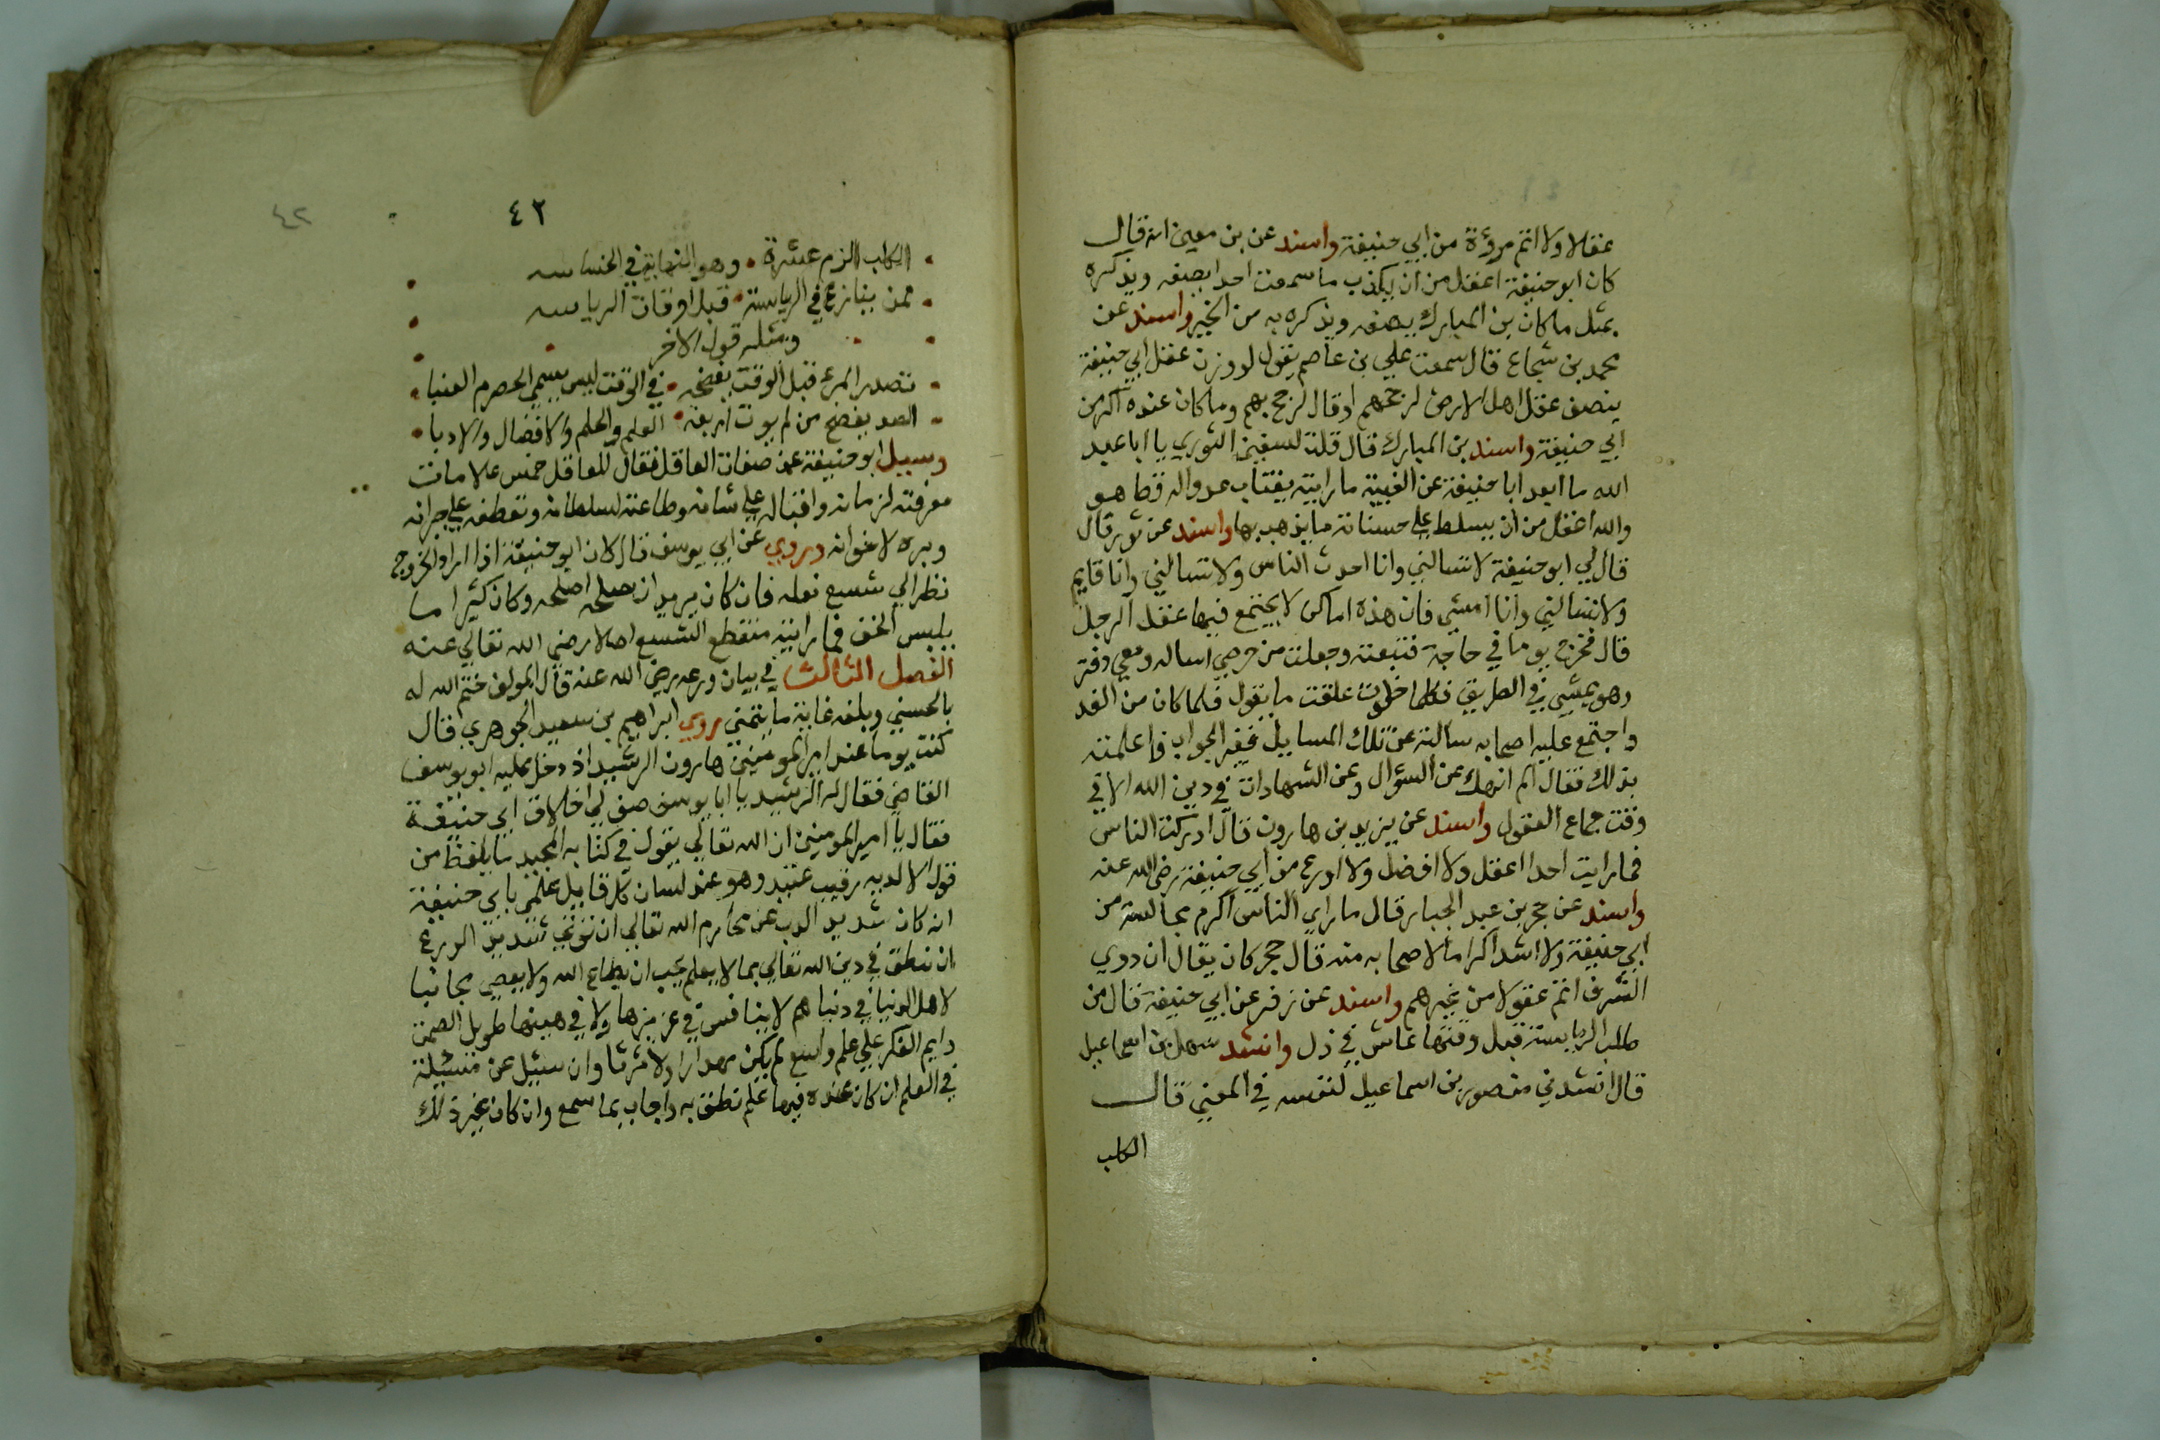 عقلا ولا اتم مروءة من ابي حنيفة واسند عن بن معين انه قال
كان ابو حنيفة اعقل من ان يكذب ما سمعت احدا يصفه ويذكره
بمثل ما كان بن المبارك يصفه ويذكره به من الخير واسند عن
محمد بن شجاع قال سمعت علي بن عاصم يقول لو وزن عقل ابي حنيفة
بنصف عقل اهل الارض لرجحهم او قال لرجح بهم وما كان عنده اكثر من
ابي حنيفة واسند بن المبارك قال قلت لسفين الثوري يا ابا عبد
الله ما ابعد ابا حنيفة عن الغيبة ما رايته يغتاب عدوا له قط هو
والله اعقل من ان يسلط علي حسناته ما يذهب بها واسند عن قال
قال لي ابو حنيفة لا تسالني وانا احدث الناس ولا تسالني وانا قايم
ولا تسالني وانا امشي فان هذه اماكن لا يجتمع فيها عقل الرجل
قال فخرج يوما في حاجة فتبعته وجعلت من حرصي اساله ومعي دفتر
وهو يمشي في الطريق فكلما علقت ما يقول فلما كان من الغد
واجتمع عليه اصحابه سالته عن تلك المسايل فغير الجواب فاعلمته
بذلك فقال الم انهك عن السؤال وعن الشهادات في دين الله الا في
وقت جماع العقول واسند عن يزيد بن هارون قال ادركت الناس
فما رايت احدا اعقل ولا افضل ولا اورع من ابي حنيفة رضي الله عنه
واسند عن حجر بن عبد الجبار قال ما راي الناس اكرم مجالسة من
ابي حنيفة ولا اشد اكراما لاصحابه منه قال حجر كان يقال ان دوي
الشرف اتم عقولا من غيرهم واسند عن زفر عن ابي حنيفة قال من
طلب الرياسة قبل وقتها عاش في ذل وانشد سهل بن اسماعيل
قال انشدني منصور بن اسماعيل لنفسه في المعني قال
الكلب
٤٢
٤٢
الكلب الزم عشرة • وهو النهاية في الخساسه
ممن ينازع في الرياسة • قبل اوقات الرياسه
ومثله قول الاخر
تصدر المرء قبل الوقت يفضحه • في الوقت ليس يسمي الحصرم العنبا
الصدر يفضح من لم يوت اربعة • العلم والحلم والافضال والادبا
وسيل ابو حنيفة عن صفات العاقل فقال للعاقل خمس علامات
معرفته لزمانه واقباله علي شانه وطاعته لسلطانه وتعطفه علي جيرانه
وبره لاخوانه وروي عن ابي يوسف قال كان ابو حنيفة اذا اراد الخروج
نظر الي شسع نعله فان كان يريد ان يصلحه اصلحه وكان كثيرا ما
يلبس الخف فما رايته منقطع الشسع اصلا رضي الله تعالي عنه
الفصل الثالث في بيان ورعه رضي الله عنه قال المولف ختم الله له
بالحسني وبلغه غاية ما يتمني روي ابراهيم بن سعيد الجوهري قال
كنت يوما عند امير المومنين هارون الرشيد اذ دخل عليه ابو يوسف
القاضي فقال له الرشيد يا ابا يوسف صف لي اخلاق ابي حنيفة
فقال يا امير المومنين ان الله تعالي يقول في كتابه المجيد ما يلفظ من
قول الا لديه رقيب عتيد وهو عند لسان كل قايل علمي بابي حنيفة
انه كان شديد الدب عن محارم الله تعالي ان تؤتي شديد الورع
ان ينطق في دين الله تعالي بما لا يعلم يحب ان يطاع الله ولا يعصي مجانبا
لاهل الدنيا في دنياهم لا ينافس في عزيزها ولا في طويل الصمت
دايم الفكر علي علم واسع لم يكن مهدارا ولا ثرثارا وان سيل عن مسئلة
في العلم ان كان عنده فيها علم نطق به واجاب بما سمع وان كان غير ذلك